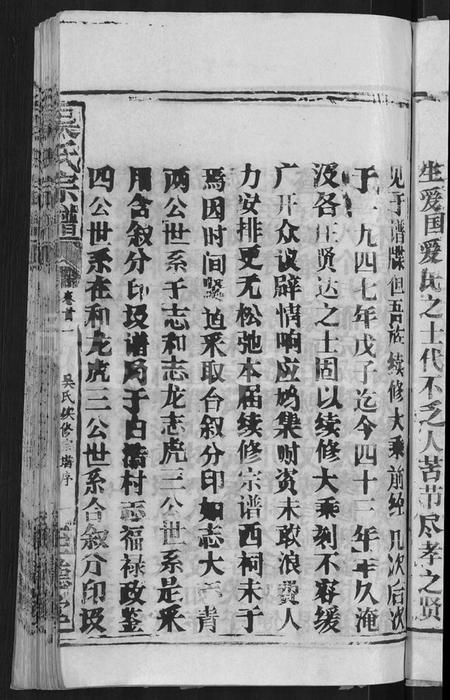 生爱国爱民之士代不乏人苦节尽孝之贤
见于谱牒但吾族续修大乘前经几次后次
于一九四七年戊子迄今四十三年年久淹
没各庄贤达之士固以续修大乘刻不容缓
广开众议辟情响应鸠集财资未敢浪费人
力安排更无松弛本届续修宗谱西祠未于
焉因时间紧迫采取合叙分印如志大志青
两公世系于志和志龙志虎三公世系是采
用合叙分印圾谱局于白
村
福禄政鉴
四公世系在和龙虎三公世系合叙分印圾
吴氏宗谱
卷首一
吴氏续修宗谱序